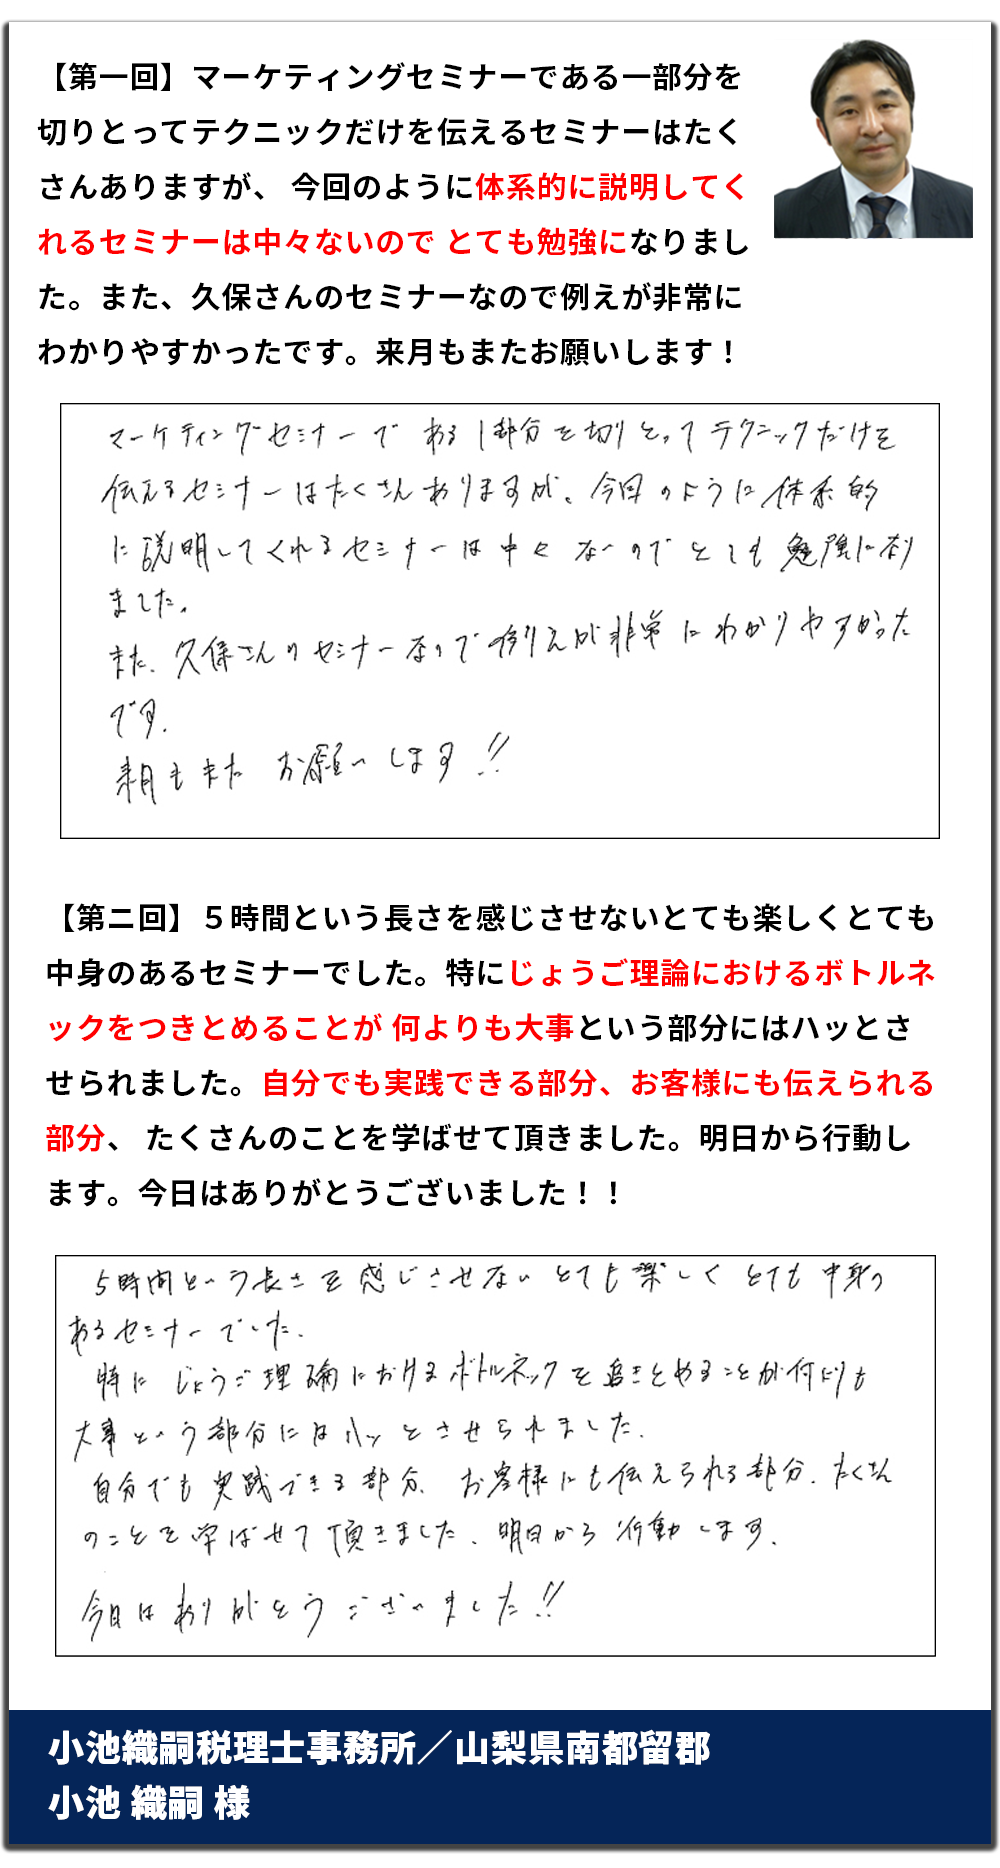 【第一回】マーケティングセミナーである一部分を
切りとってテクニックだけを伝えるセミナーはたく
さんありますが、 今回のように体系的に説明してく
れるセミナーは中々ないので とても勉強になりまし
た。また、久保さんのセミナーなので例えが非常に
わかりやすかったです。来月もまたお願いします！
マーケティングセミナーで ある1部分を切りとってテクニックだけを
伝えるセミナーはたくさんありますが、今回のように体系的
に説明してくれるセミナーは中々ないのでとても勉強になり
ました。
また、久保さんのセミナーなので例えが非常にわかりやすかった
です。
来月もまた お願いします!!
【第ニ回】５時間という長さを感じさせないとても楽しくとても
中身のあるセミナーでした。特にじょうご理論におけるボトルネ
ックをつきとめることが 何よりも大事という部分にはハッとさ
せられました。自分でも実践できる部分、お客様にも伝えられる
部分、 たくさんのことを学ばせて頂きました。明日から行動し
ます。今日はありがとうございました！！
5時間という長さを感じさせないとても楽しくとても中身の
あるセミナーでした。
特にじょうご理論におけるボトルネックを追きとめることが何よりも
大事という部分にはハッとさせられました。
自分でも実践できる部分、お客様にも伝えられる部分、たくさん
のことを学ばせて頂きました。明日から行動します。
今日はありがとうございました!!
小池織嗣税理士事務所／山梨県南都留郡
小池 織嗣 様